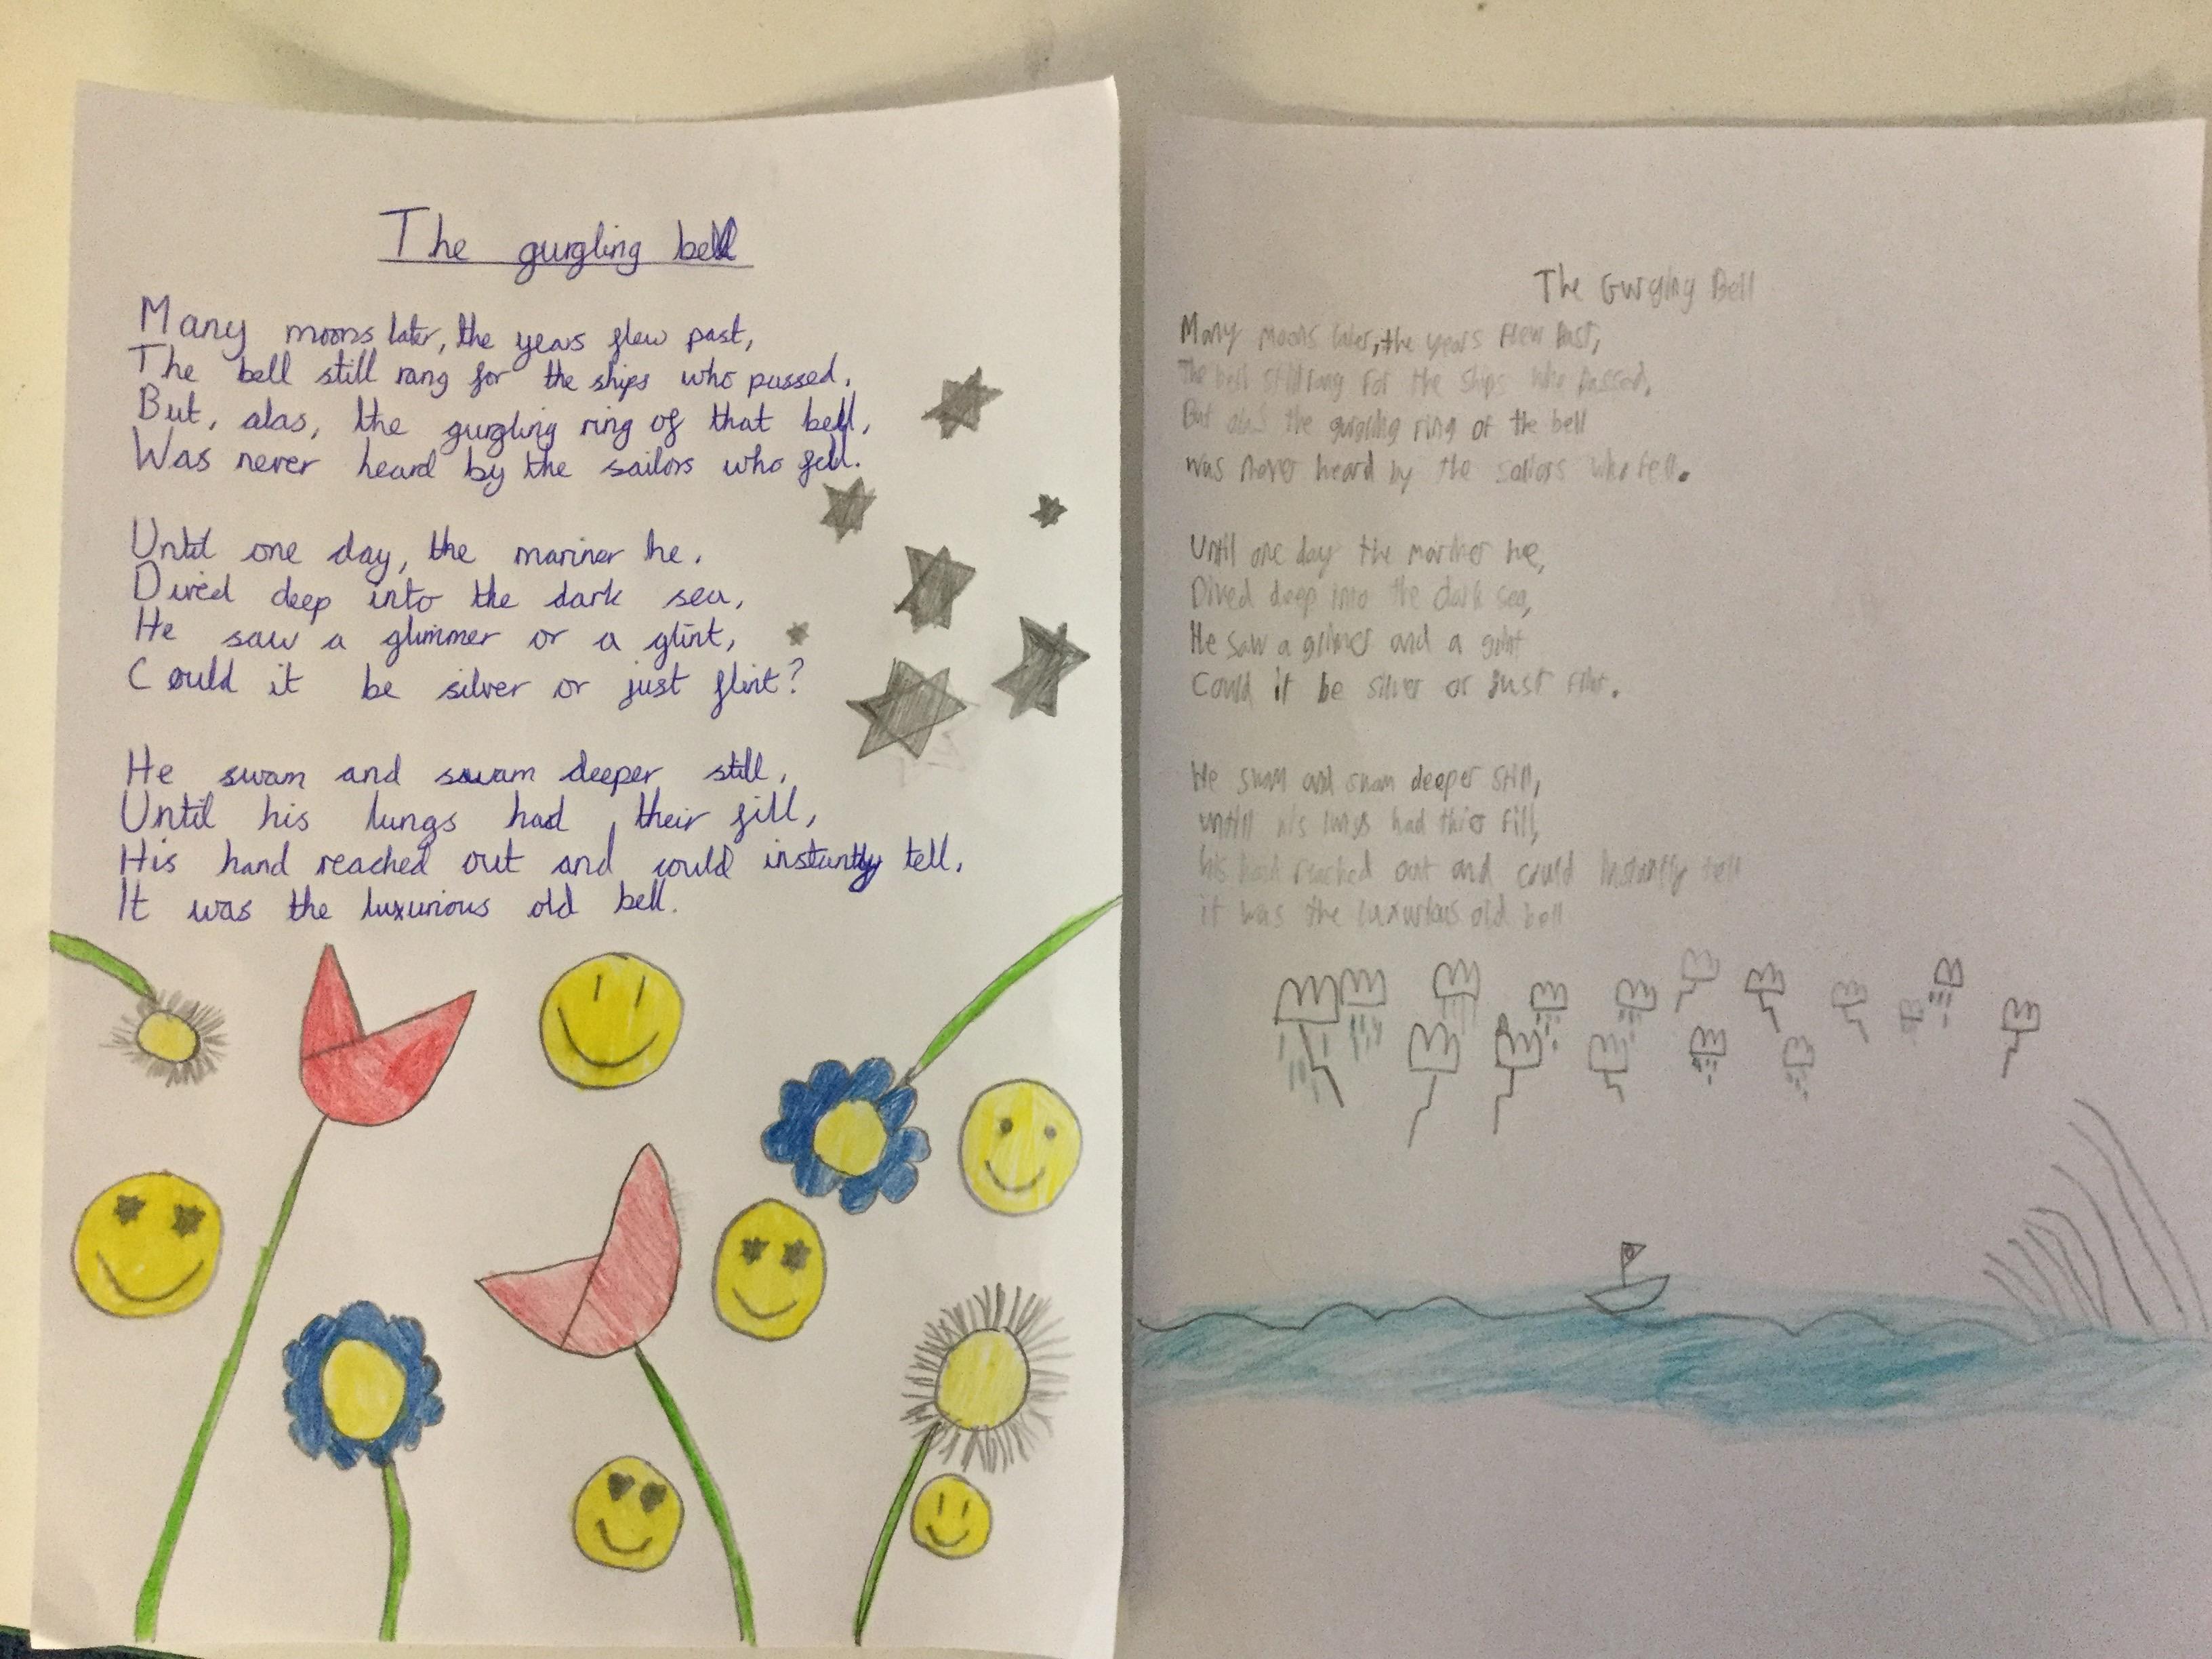 The gurgling bell
Many moons later, the years flew past,
The bell still rang for the ships who passed,
But, alas, the gurgling ring of that bell,
Was never heard by the sailors who fell.
Until one day, the mariner he,
Dived deep into the dark sea,
He saw a glimmer or a glint,
Could it be silver or just flint?
He swam and swam deeper still,
Until his lungs had, their fill,
His hand reached out and could instantly tell,
It was the luxurious old bell.
The Gurgling Bell
Many moons later, the years flew past,
The bell still rang for the ships who passed,
But alas the gurgling ring of the bell
was never heard by the sailors who fell.
Until one day the mariner he,
Dived deep into the dark sea,
He saw a glimer and a glint
Could it be silver or just flint.
He swam and swam deeper still,
untill his lungs had thier fill,
his hand reached out and could instantly tell
it was the luxurious old bell